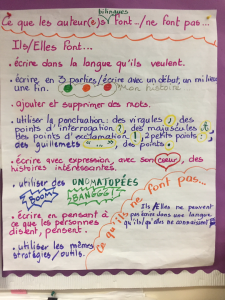 bilingues
Ce que les auteur(e)s font.../ne font pas...
Ils/Elles Font...
• écrire dans la langue qu'ils veulent.
• écrire en 3 parties/écrire avec un début, un milieu
une fin. Mon histoire
• ajouter et supprimer des mots.
• utiliser la ponctuation: des virgules , des
points d'interrogation ?, des majuscules
des points d'exclamation !, 2 petits points :,
des guillemets « ... », des points .
• écrire avec expression, avec son cœur, des
histoires intéressantes.
• utiliser des ONOMATOPÉES
BOOM BANGGG!
• écrire en pensant à
ce que les personnes
disent, pensent.
• utiliser les mêmes
stratégies/outils.
Ce qu'ils ne font pas...
Ils/Elles ne peuvent
pas écrire dans une langue
qu'ils/qu'elles ne connaissent pas